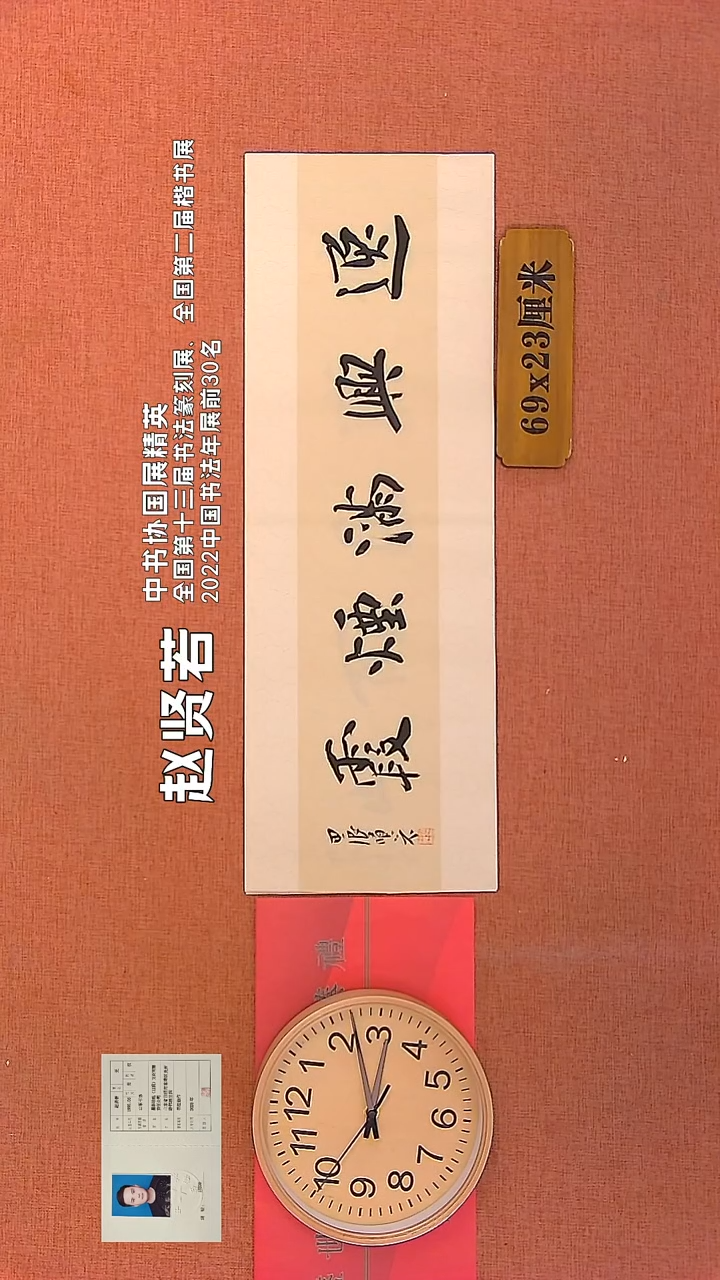 赵贤若
中书协国展精英
全国第十三届书法篆刻展、全国第二届楷书展
2022中国书法年展前30名
逸興滿煙霞
69x23厘米
禮
12
1
2
3
4
5
6
7
8
9
10
11